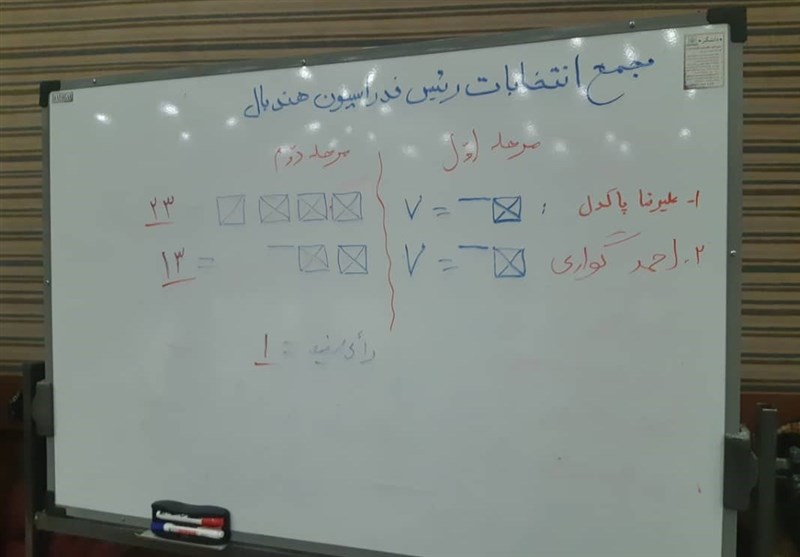 مجمع انتخابات رئیس فدراسیون هندبال
مرحله اوّل مرحله دوّم
۱- علیرضا پاکدل : = ۷ ۲۳
۲- احمد گواری = ۷ = ۱۳
رأی سفید = ۱